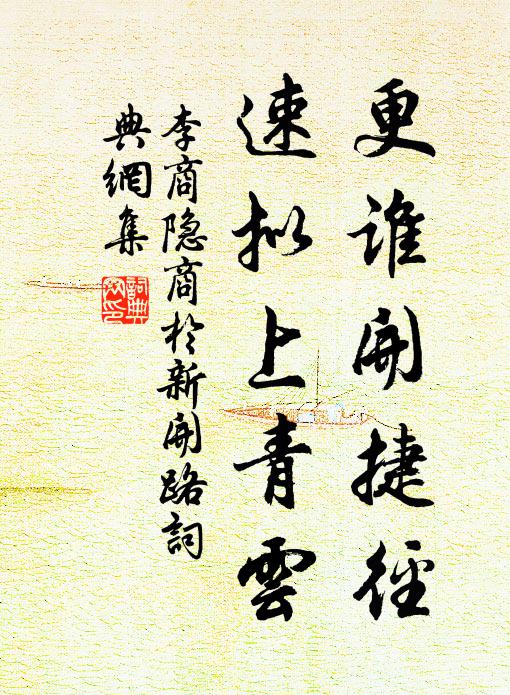 更谁開捷徑
速拟上青雲
李商隐商於新開路詞
典網集
詞典
网印